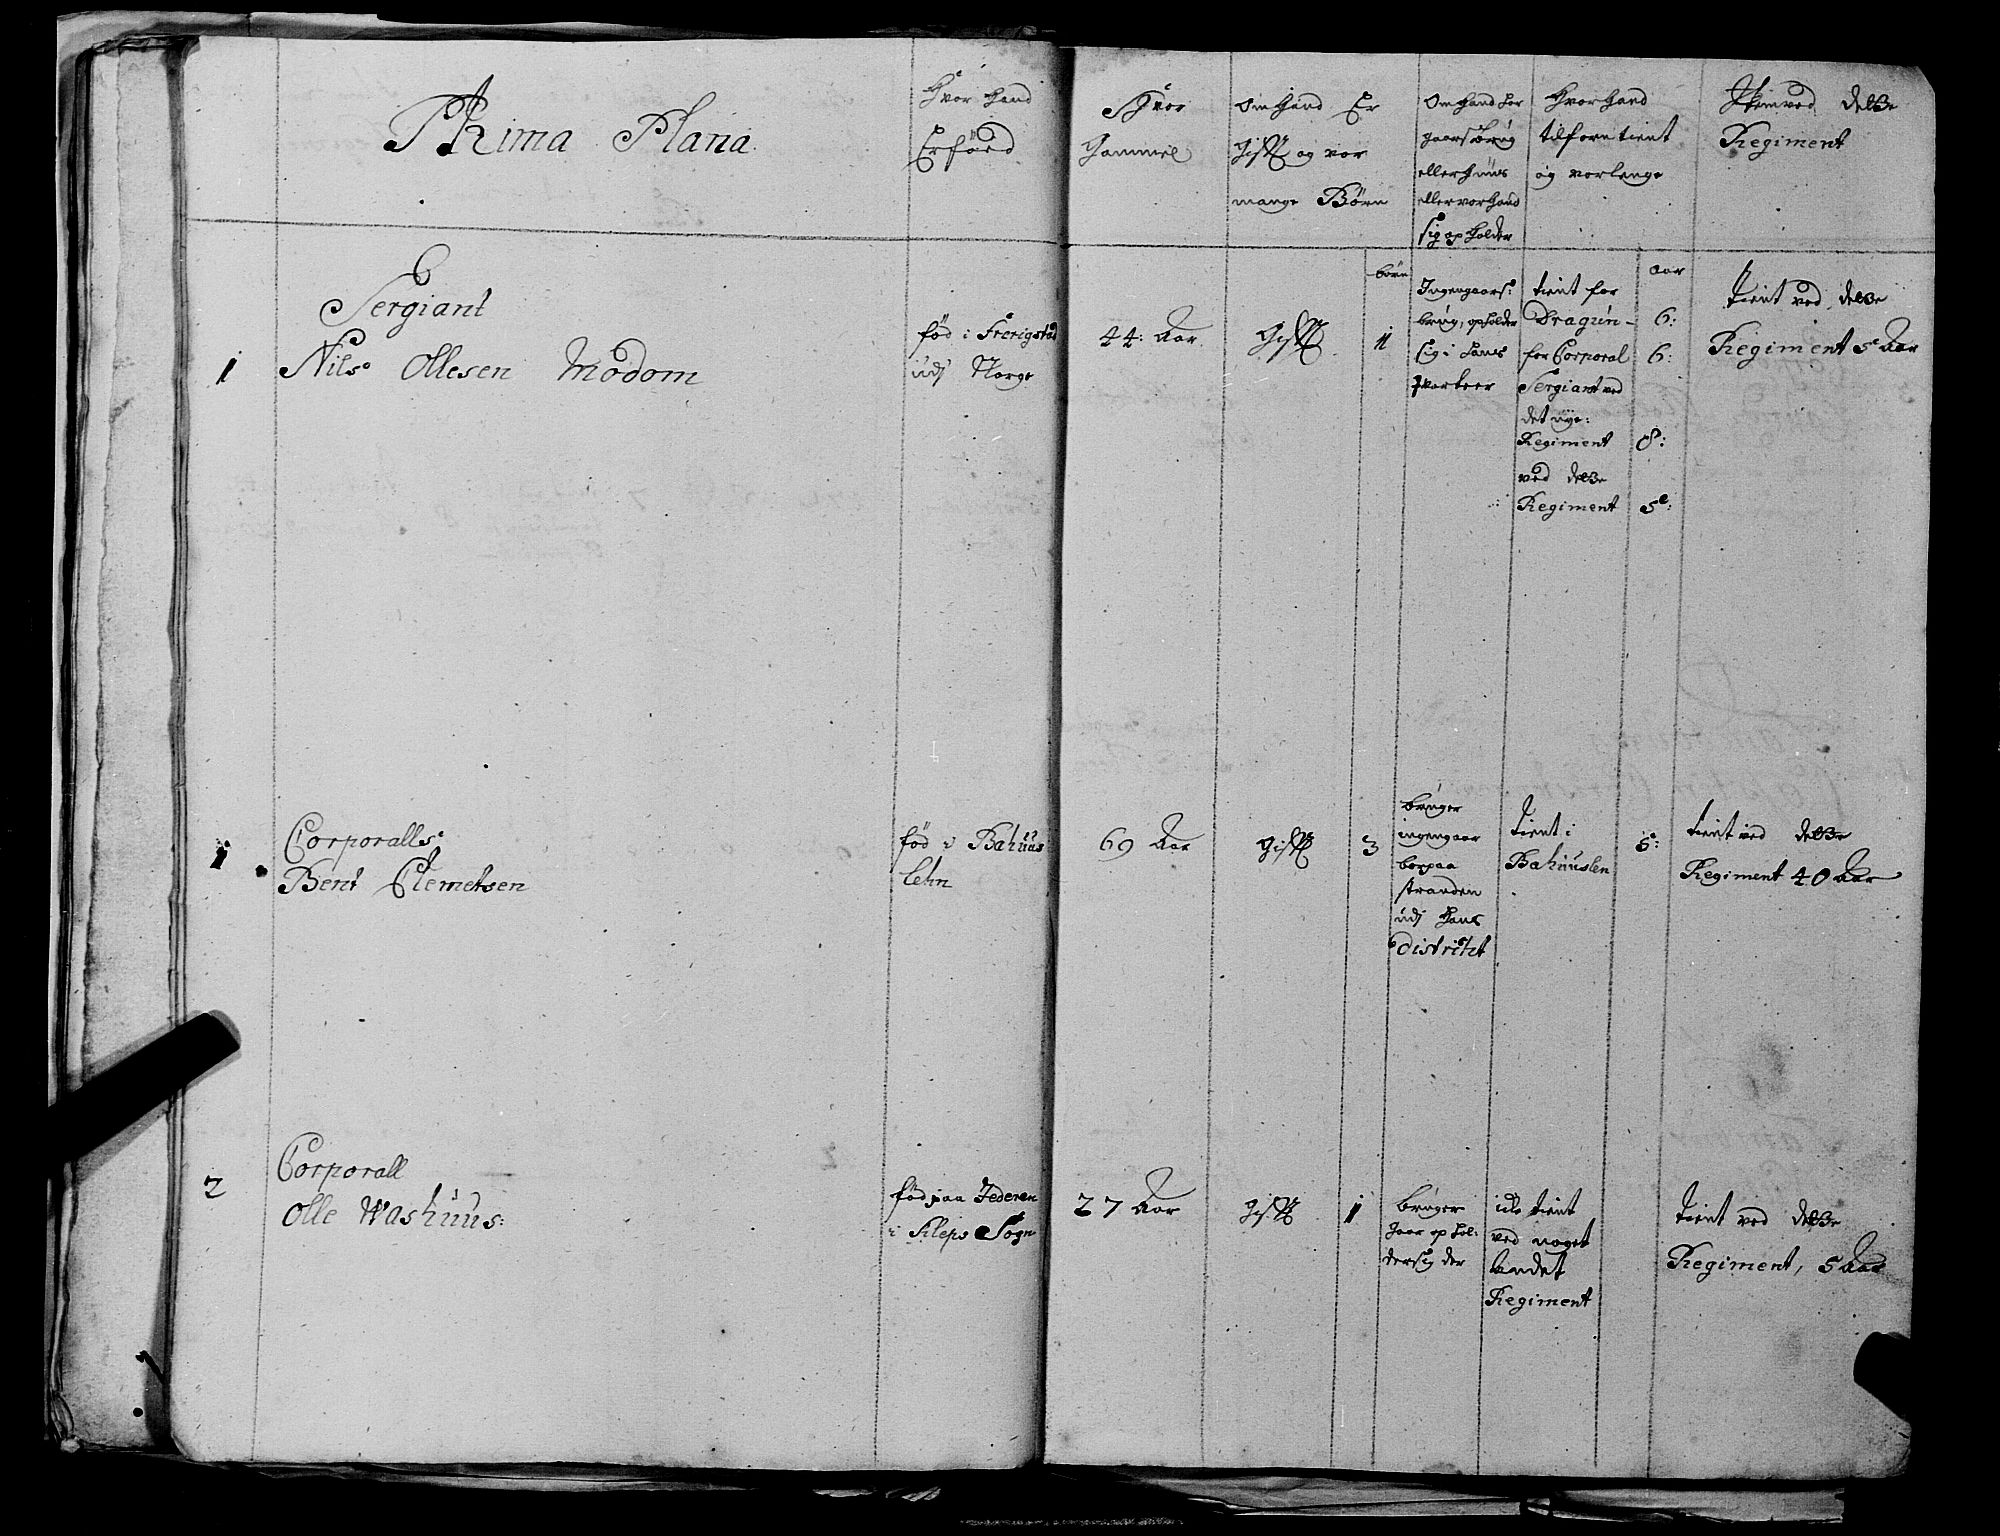 Prima Plana
Hvor hand
Er föed
Hvor
gammel
Om hand Er
gift og vor
mange Börn
Om hand har
gaarsbrug
eller huus
eller vor hand
sig op holder
Hvor hand
tilforn tient
og vor lenge
Tien ved dette
Regiment
börn
aar
Sergiant
1 Nils Ollesen Modom
föd i Frerigstad
udj Norge
44: Aar
gift
Ingen gaars:
brug, opholder
sig i hans
qvarteer
tient for
Dragun - 6:
for Corporal 6:
Sergiant ved
det nye:
Regiment 8:
ved dette
Regiment 5:
tient ved dette
Regiment 5 Aar
1 Corporalls
Bent Clemetsen
föd i Bahuus
lehn
69 Aar
gift
3
bruger
ingen gaar
bor paa
stranden
udj hans
district
tient i
Bahuuslen
5:
tient ved dette
Regiment 40 Aar
2 Corporall
Olle Washuus:
föd paa Jederen
i Kleps Sogn
27 Aar
gift
1
bruger
gaar op hol:
der sig der
icke tient
ved noget
andet
Regiment
tient ved dette
Regiment, 5 Aar